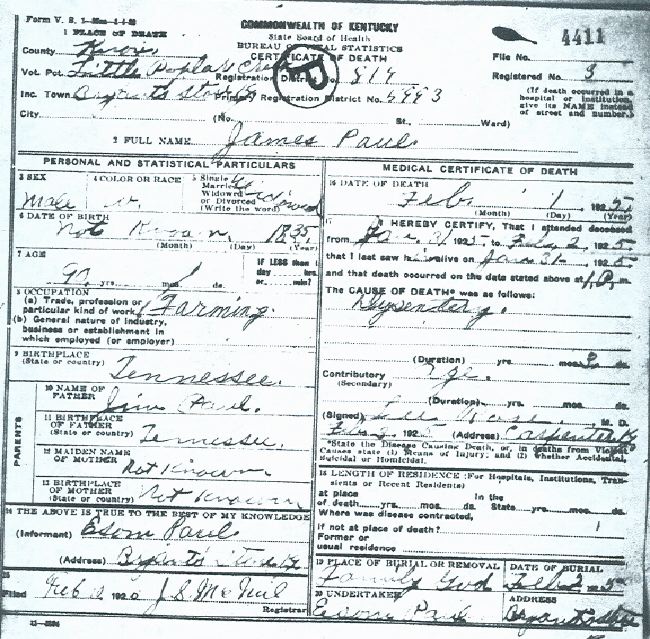 Form V. S.
COMMONWEALTH OF KENTUCKY
State Board of Health
BUREAU OF VITAL STATISTICS
CERTIFICATE OF DEATH
4411
1 PLACE OF DEATH
County Knox
Vot. Pct. Little Poplar Creek
Registration District No. 819
Inc. Town Bryants Store
Primary Registration District No. 5993
City (No. St., Ward)
File No.
Registered No. 3
(If death occurred in a hospital or institution, give its NAME instead of street and number.)
2 FULL NAME James Paul
PERSONAL AND STATISTICAL PARTICULARS
3 SEX
Male
4 COLOR OR RACE
w.
5 Single
Married
Widowed
or Divorced
(Write the word)
Widowed
6 DATE OF BIRTH
Not Known, 1835
(Month) (Day) (Year)
7 AGE
90 yrs. mos. ds.
IF LESS than 1 day hrs. or min.?
8 OCCUPATION
(a) Trade, profession or particular kind of work Farming
(b) General nature of industry, business or establishment in which employed (or employer)
9 BIRTHPLACE
(State or country) Tennessee.
PARENTS
10 NAME OF FATHER Jim Paul.
11 BIRTHPLACE OF FATHER
(State or country) Tennessee,
12 MAIDEN NAME OF MOTHER Not Known
13 BIRTHPLACE OF MOTHER
(State or country) Not Known
14 THE ABOVE IS TRUE TO THE BEST OF MY KNOWLEDGE
(Informant) Esom Paul
(Address) Bryants Store Ky
15
Filed Feb 192 J S McNeil
Registrar
MEDICAL CERTIFICATE OF DEATH
16 DATE OF DEATH
Feb. 1 1925
(Month) (Day) (Year)
17 I HEREBY CERTIFY, That I attended deceased
from Jan 31 1925 to Feb 2, 1925
that I last saw h alive on Jan 31 1925
and that death occurred on the date stated above at 1 P. m.
The CAUSE OF DEATH* was as follows:
Dysentery.
(Duration) yrs. mos. 2 ds.
Contributory Age.
(Secondary)
(Duration) yrs. mos. ds.
(Signed) Lee M. D.
Feb 2, 1925 (Address) Carpenter Ky
*State the Disease Causing Death, or, in deaths from Violent Causes state (1) Means of Injury; and (2) whether Accidental, Suicidal or Homicidal.
18 LENGTH OF RESIDENCE (For Hospitals, Institutions, Transients or Recent Residents)
At place of death yrs. mos. ds. In the State yrs. mos. ds.
Where was disease contracted,
if not at place of death?
Former or
usual residence
19 PLACE OF BURIAL OR REMOVAL
Family Gvd
DATE OF BURIAL
Feb 2 1925
20 UNDERTAKER
Esom Paul
ADDRESS
Bryants Store